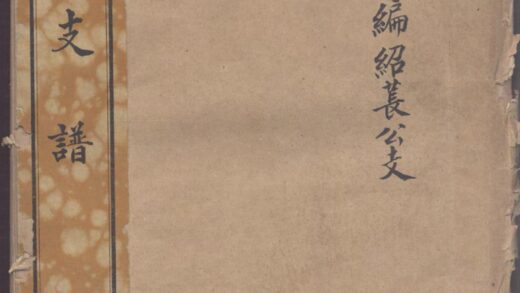 編紹萇公支
支譜